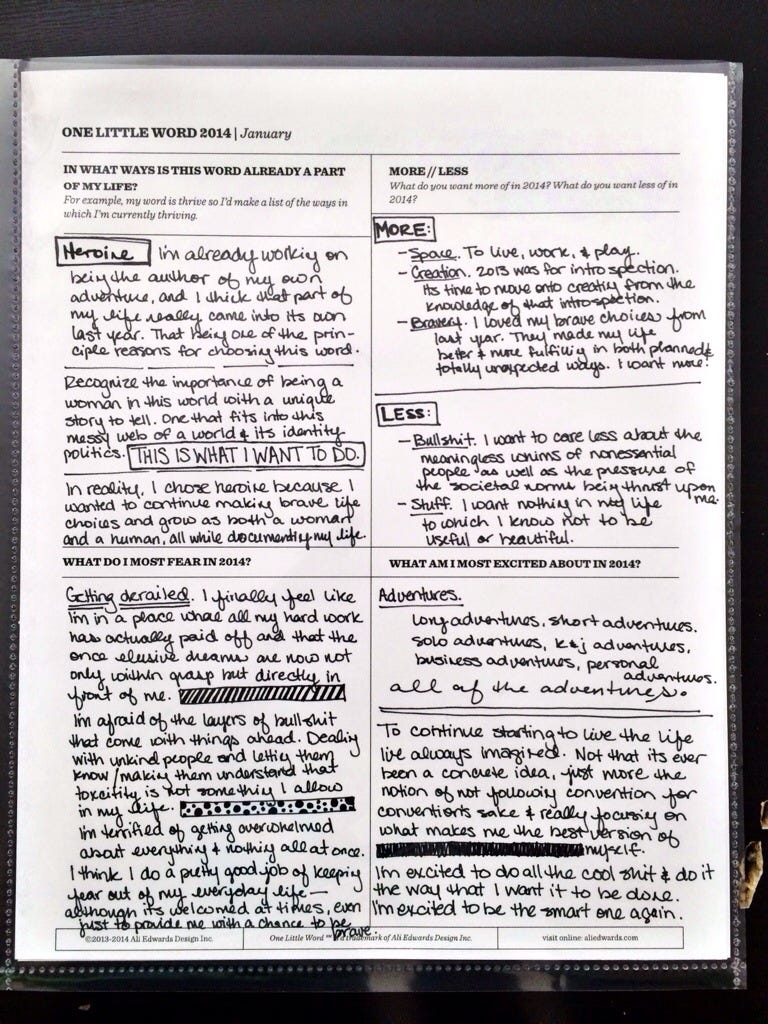 ONE LITTLE WORD 2014 | January
IN WHAT WAYS IS THIS WORD ALREADY A PART
OF MY LIFE?
For example, my word is thrive so I'd make a list of the ways in
which I'm currently thriving.
Heroine I'm already working on
being the author of my own
adventure, and I think that part of
my life really came into its own
last year. That being one of the prin-
ciple reasons for choosing this word.
Recognize the importance of being a
woman in this world with a unique
story to tell. One that fits into this
messy web of a world & its identity
politics. THIS IS WHAT I WANT TO DO.
In reality, I chose heroine because I
wanted to continue making brave life
choices and grow as both a woman
and a human, all while documenting my life.
MORE // LESS
What do you want more of in 2014? What do you want less of in
2014?
MORE:
- Space. To live, work, & play.
- Creation. 2013 was for introspection.
Its time to move onto creating from the
knowledge of that introspection.
- Bravery. I loved my brave choices from
last year. They made my life
better & more fulfilling in both planned &
totally unexpected ways. I want more!
LESS:
- Bullshit. I want to care less about the
meaningless whims of nonessential
people as well as the pressure of
the societal norms being thrust upon
me.
- Stuff. I want nothing in my life
to which I know not to be
useful or beautiful.
WHAT DO I MOST FEAR IN 2014?
Getting derailed. I finally feel like
I'm in a place where all my hard work
has actually paid off and that the
once elusive dreams are now not
only within grasp but directly in
front of me.
I'm afraid of the layers of bullshit
that come with things ahead. Dealing
with unkind people and letting them
know/making them understand that
toxicity is not something I allow
in my life.
I'm terrified of getting overwhelmed
about everything & nothing all at once.
I think I do a pretty good job of keeping
fear out of my everyday life—
although its welcomed at times, even
just to provide me with a chance to be
brave.
WHAT AM I MOST EXCITED ABOUT IN 2014?
Adventures.
long adventures, short adventures.
solo adventures, k&j adventures,
business adventures, personal
adventures.
all of the adventures.
To continue starting to live the life
I've always imagined. Not that its ever
been a concrete idea, just more the
notion of not following convention for
conventions sake & really focusing on
what makes me the best version of
myself.
I'm excited to do all the cool shit & do it
the way that I want it to be done.
I'm excited to be the smart one again.
©2013-2014 Ali Edwards Design Inc.
One Little Word ™ trademark of Ali Edwards Design Inc.
visit online: aliedwards.com